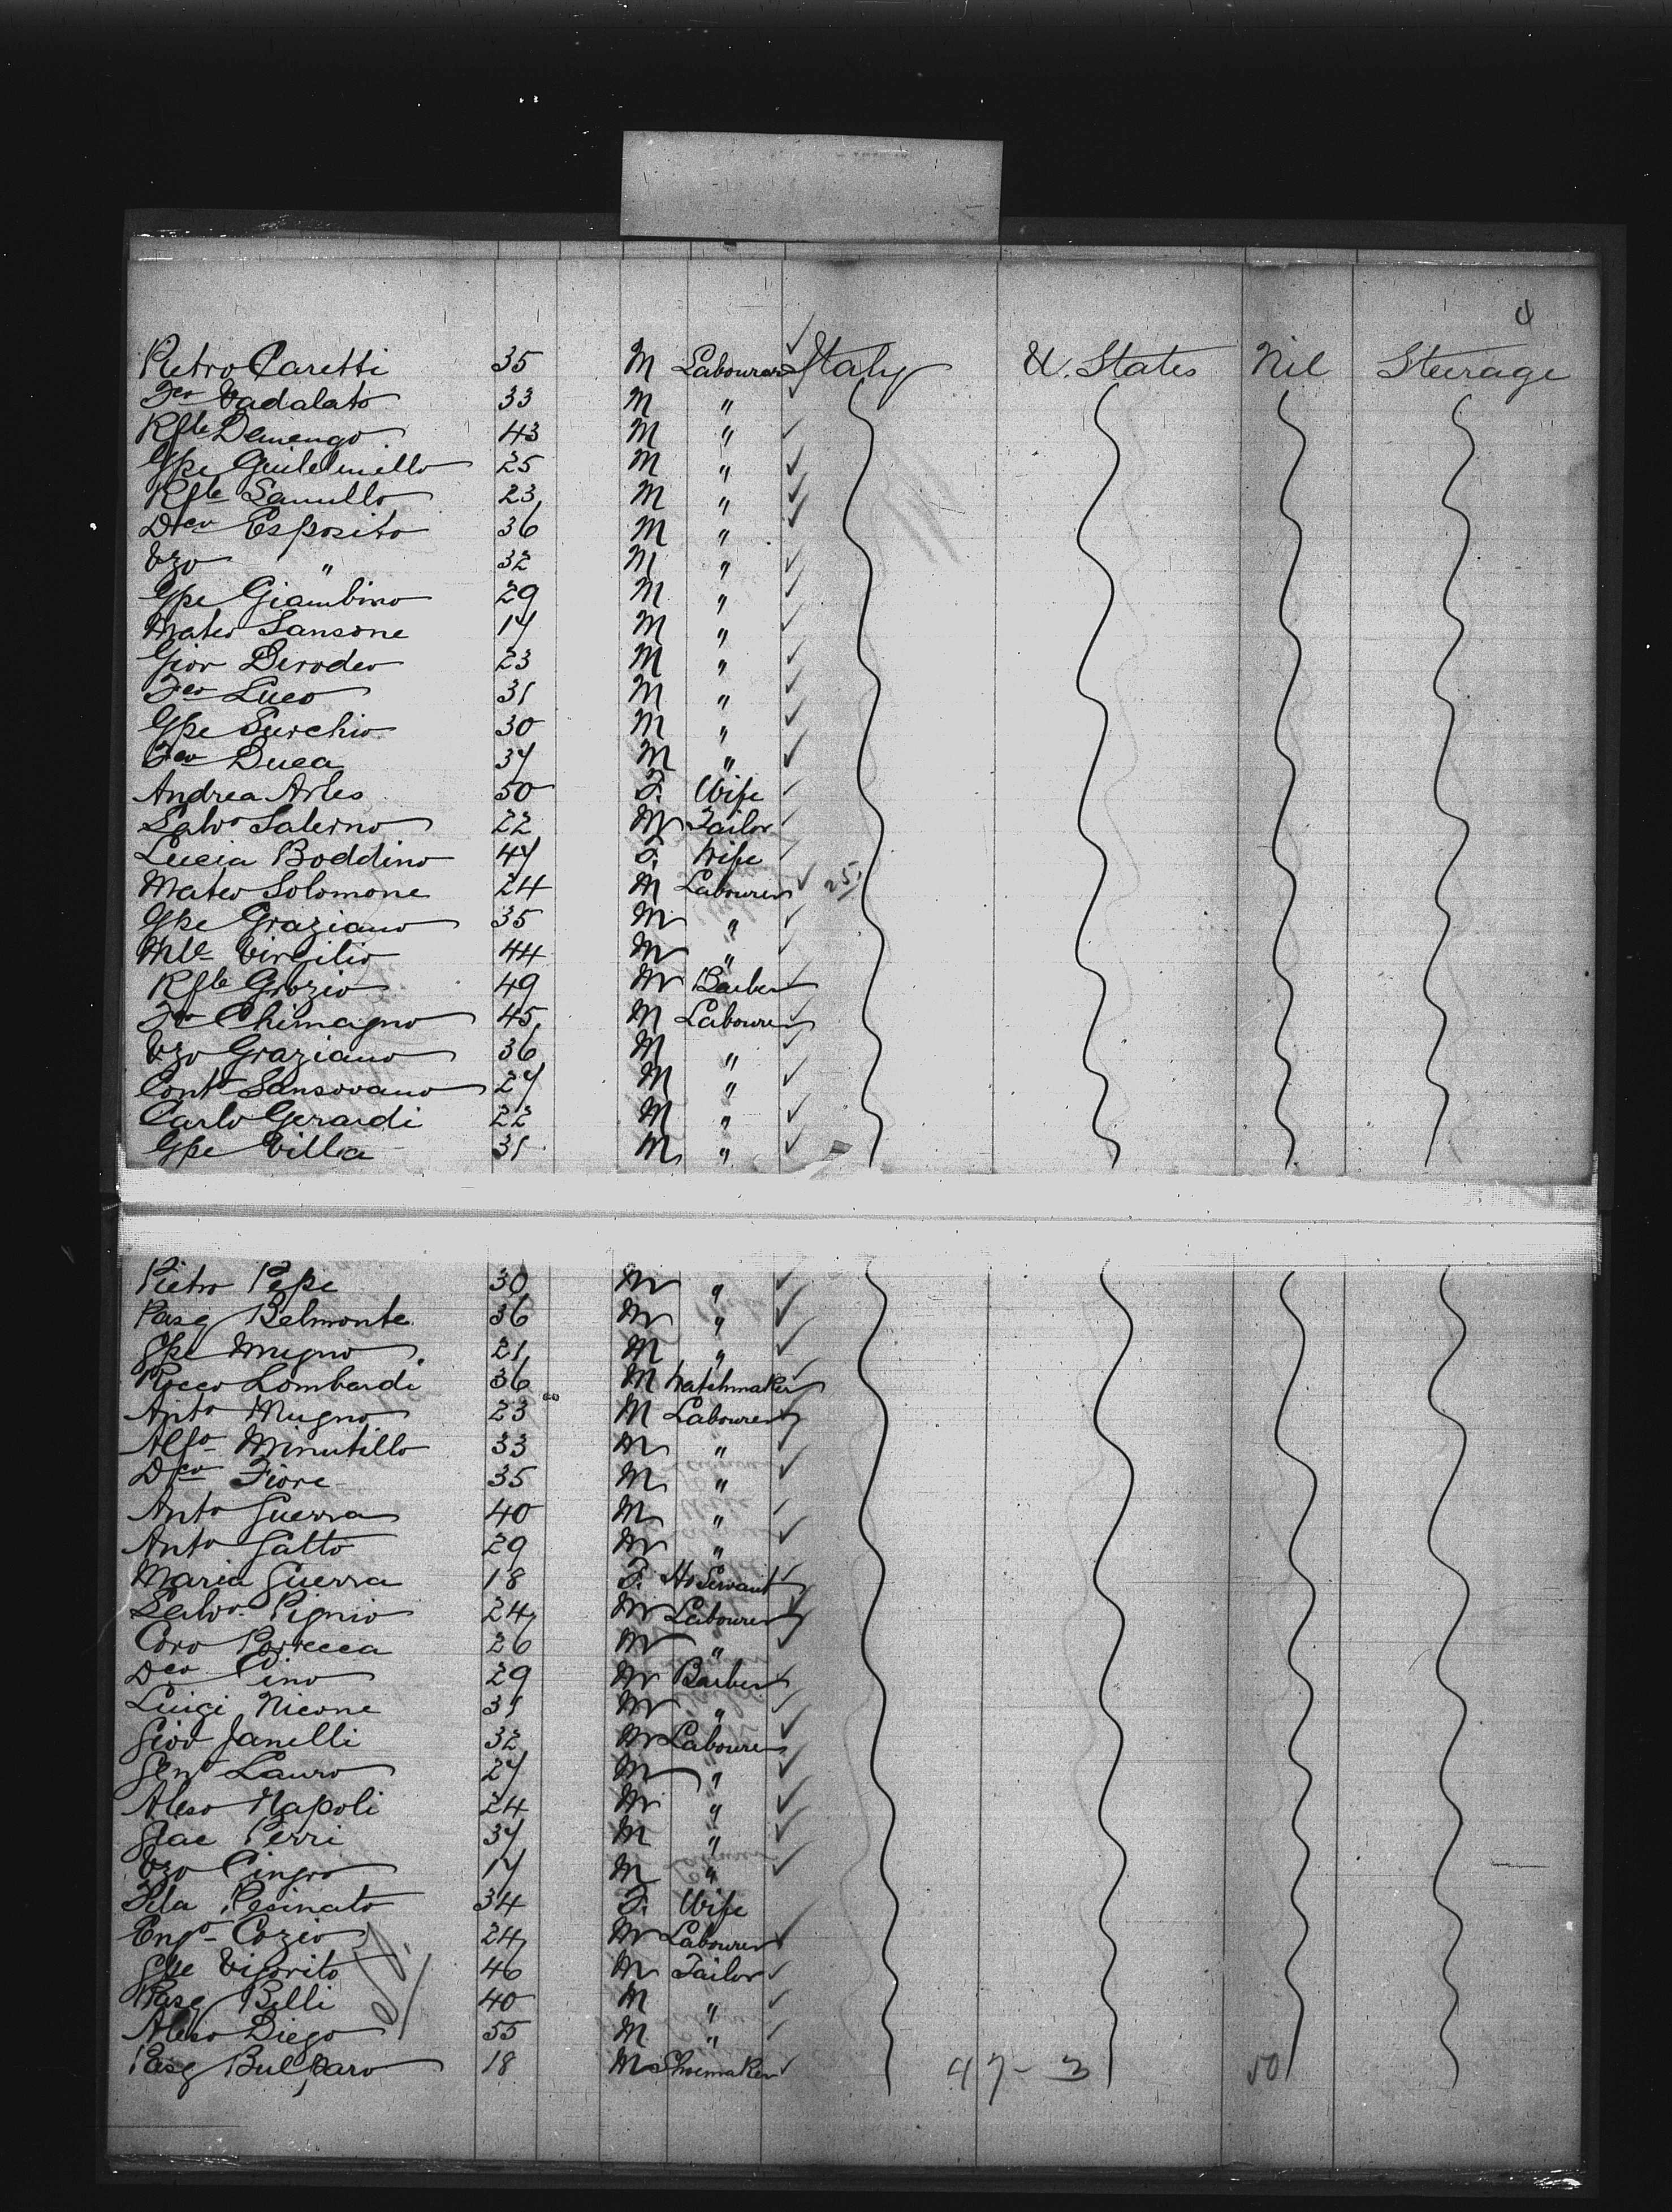 4
Pietro Caretti 35 M Labourer Italy U. States Nil Steerage
Fco Vadalato 33 M "
Rfle Demengo 43 M "
Gpe Guilelmillo 25 M "
Rfle Samullo 23 M "
Dco Esposito 36 M "
Vzo " 32 M "
Gpe Giambino 29 M "
Mateo Sansone 17 M "
Giov Derodeo 23 M "
Fco Luco 31 M "
Gpe Surchio 30 M "
Fco Duca 37 M "
Andrea Arles 50 F. Wife
Salvo Salerno 22 M Tailor
Lucia Boddino 47 F. Wife
Mateo Solomone 24 M Labourer 25/
Gpe Graziano 35 M "
Mle Virgilio 44 M "
Rfle Grozio 49 M Barber
Fco Chimagno 45 M Labourer
Vzo Graziano 36 M "
Conto Sansovano 27 M "
Carlo Gerardi 22 M "
Gpe Villa 31 M "
Pietro Pepe 30 M "
Pasq Belmonte 36 M "
Gpe Mugno 21 M "
Rocco Lombardi 36 M Watchmaker
Anto Mugno 23 M Labourer
Alfo Minutillo 33 M "
Dco Fiore 35 M "
Anto Guerra 40 M "
Anto Gatto 29 M "
Maria Guerra 18 F. Hs Servant
Salvo Pignio 24 M Labourer
Coro Porrecca 26 M "
Dco Pino 29 M Barber
Luigi Nicone 31 M "
Giov Janelli 32 M Labourer
Geno Lauro 27 M "
Aleso Napoli 24 M "
Giac Perri 37 M "
Vzo Cingro 17 M "
Fila Pesinato 34 F. Wife
Engo Cozio 24 M Labourer
Gpe Vigorito 46 M Tailor
Pasq Billi 40 M "
Aleso Diego 55 M "
Pasq Bulzaro 18 M Shoemaker 47-3 50